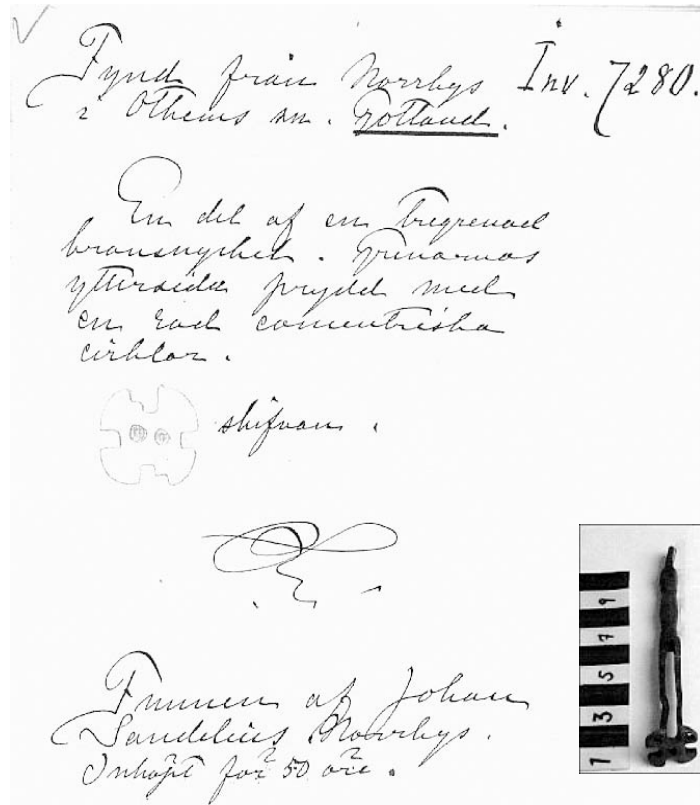 Fynd från Norrbys Inv. 7280.
i Othems sn. Gotland.
En del af en tregrenad
bronsnyckel. Grenarnas
yttersida prydd med
en rad concentriska
cirklar.
skifvan.
Funnen af Johan
Sandelius Norrbys.
Inköpt för 50 öre.
1 3 5 7 9